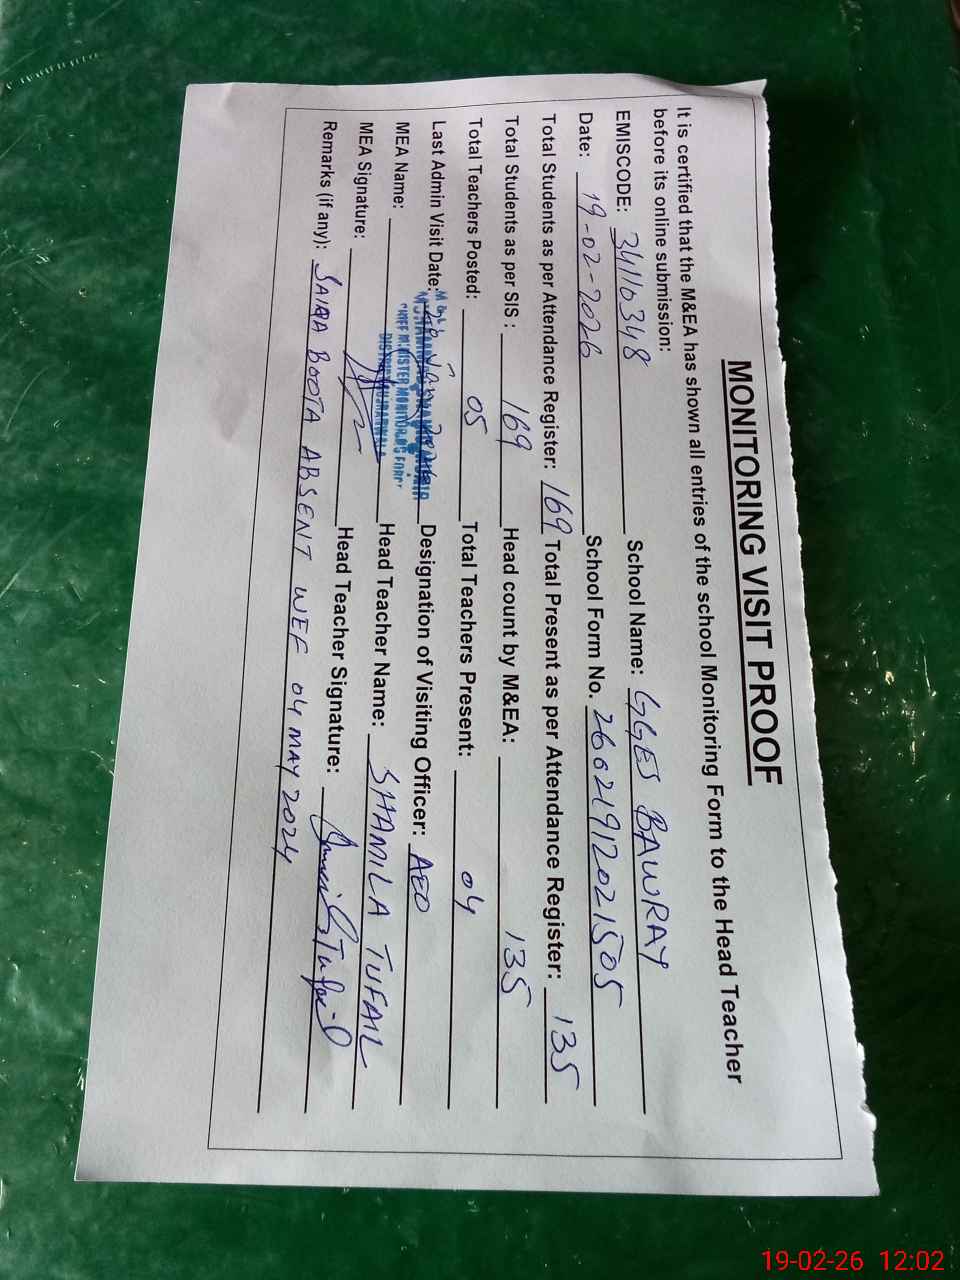 MONITORING VISIT PROOF
It is certified that the M&EA has shown all entries of the school Monitoring Form to the Head Teacher
before its online submission:
EMISCODE: 34110348 School Name: GGES BAWRAY
Date: 19-02-2026 School Form No. 26021912021505
Total Students as per Attendance Register: 169 Total Present as per Attendance Register: 135
Total Students as per SIS : 169 Head count by M&EA: 135
Total Teachers Posted: 05 Total Teachers Present: 04
Last Admin Visit Date: Designation of Visiting Officer: AEO
MEA Name: CHIEF MINISTER MONITORING FORCE Head Teacher Name: SHAMILA TUFAIL
DISTRICT GUJRANWALA
MEA Signature: Head Teacher Signature:
Remarks (if any): SAIRA BOOTA ABSENT WEF 04 MAY 2024
19-02-26 12:02